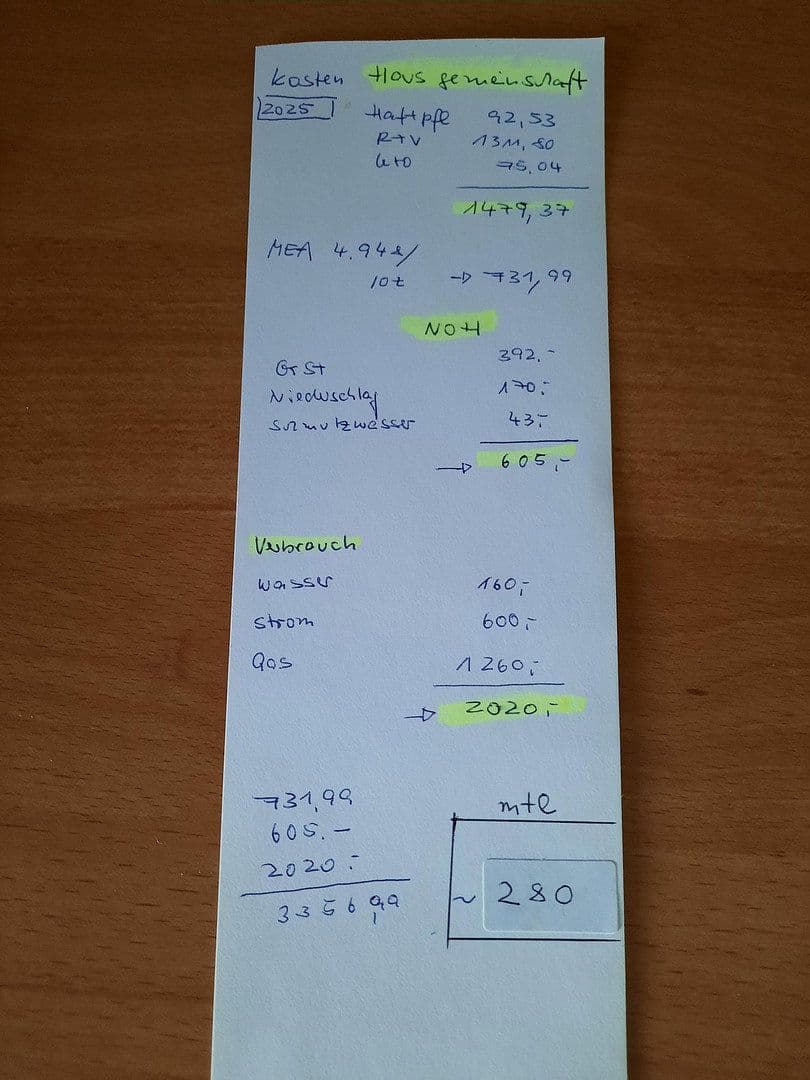 Kosten Hausgemeinschaft
2025 Haftpfl 92,53
R+V 1311,80
Kto 75,04
1479,37
MEA 4.948/
10t → 731,99
NOH
GrSt 392.-
Niederschlag 170.-
Schmutzwasser 43,-
→ 605,-
Verbrauch
Wasser 160,-
Strom 600,-
Gas 1260,-
→ 2020,-
731,99
605.-
2020.-
3356,99
mtl
~ 280